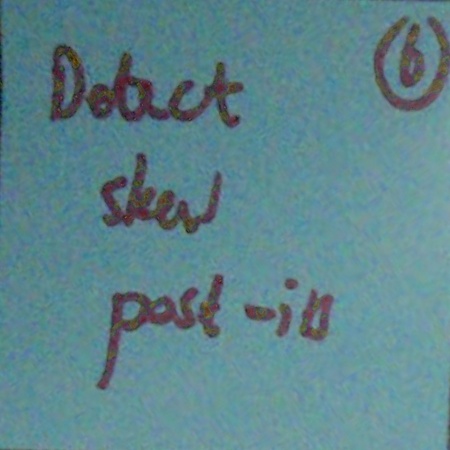 Detect
6
skew
post-its